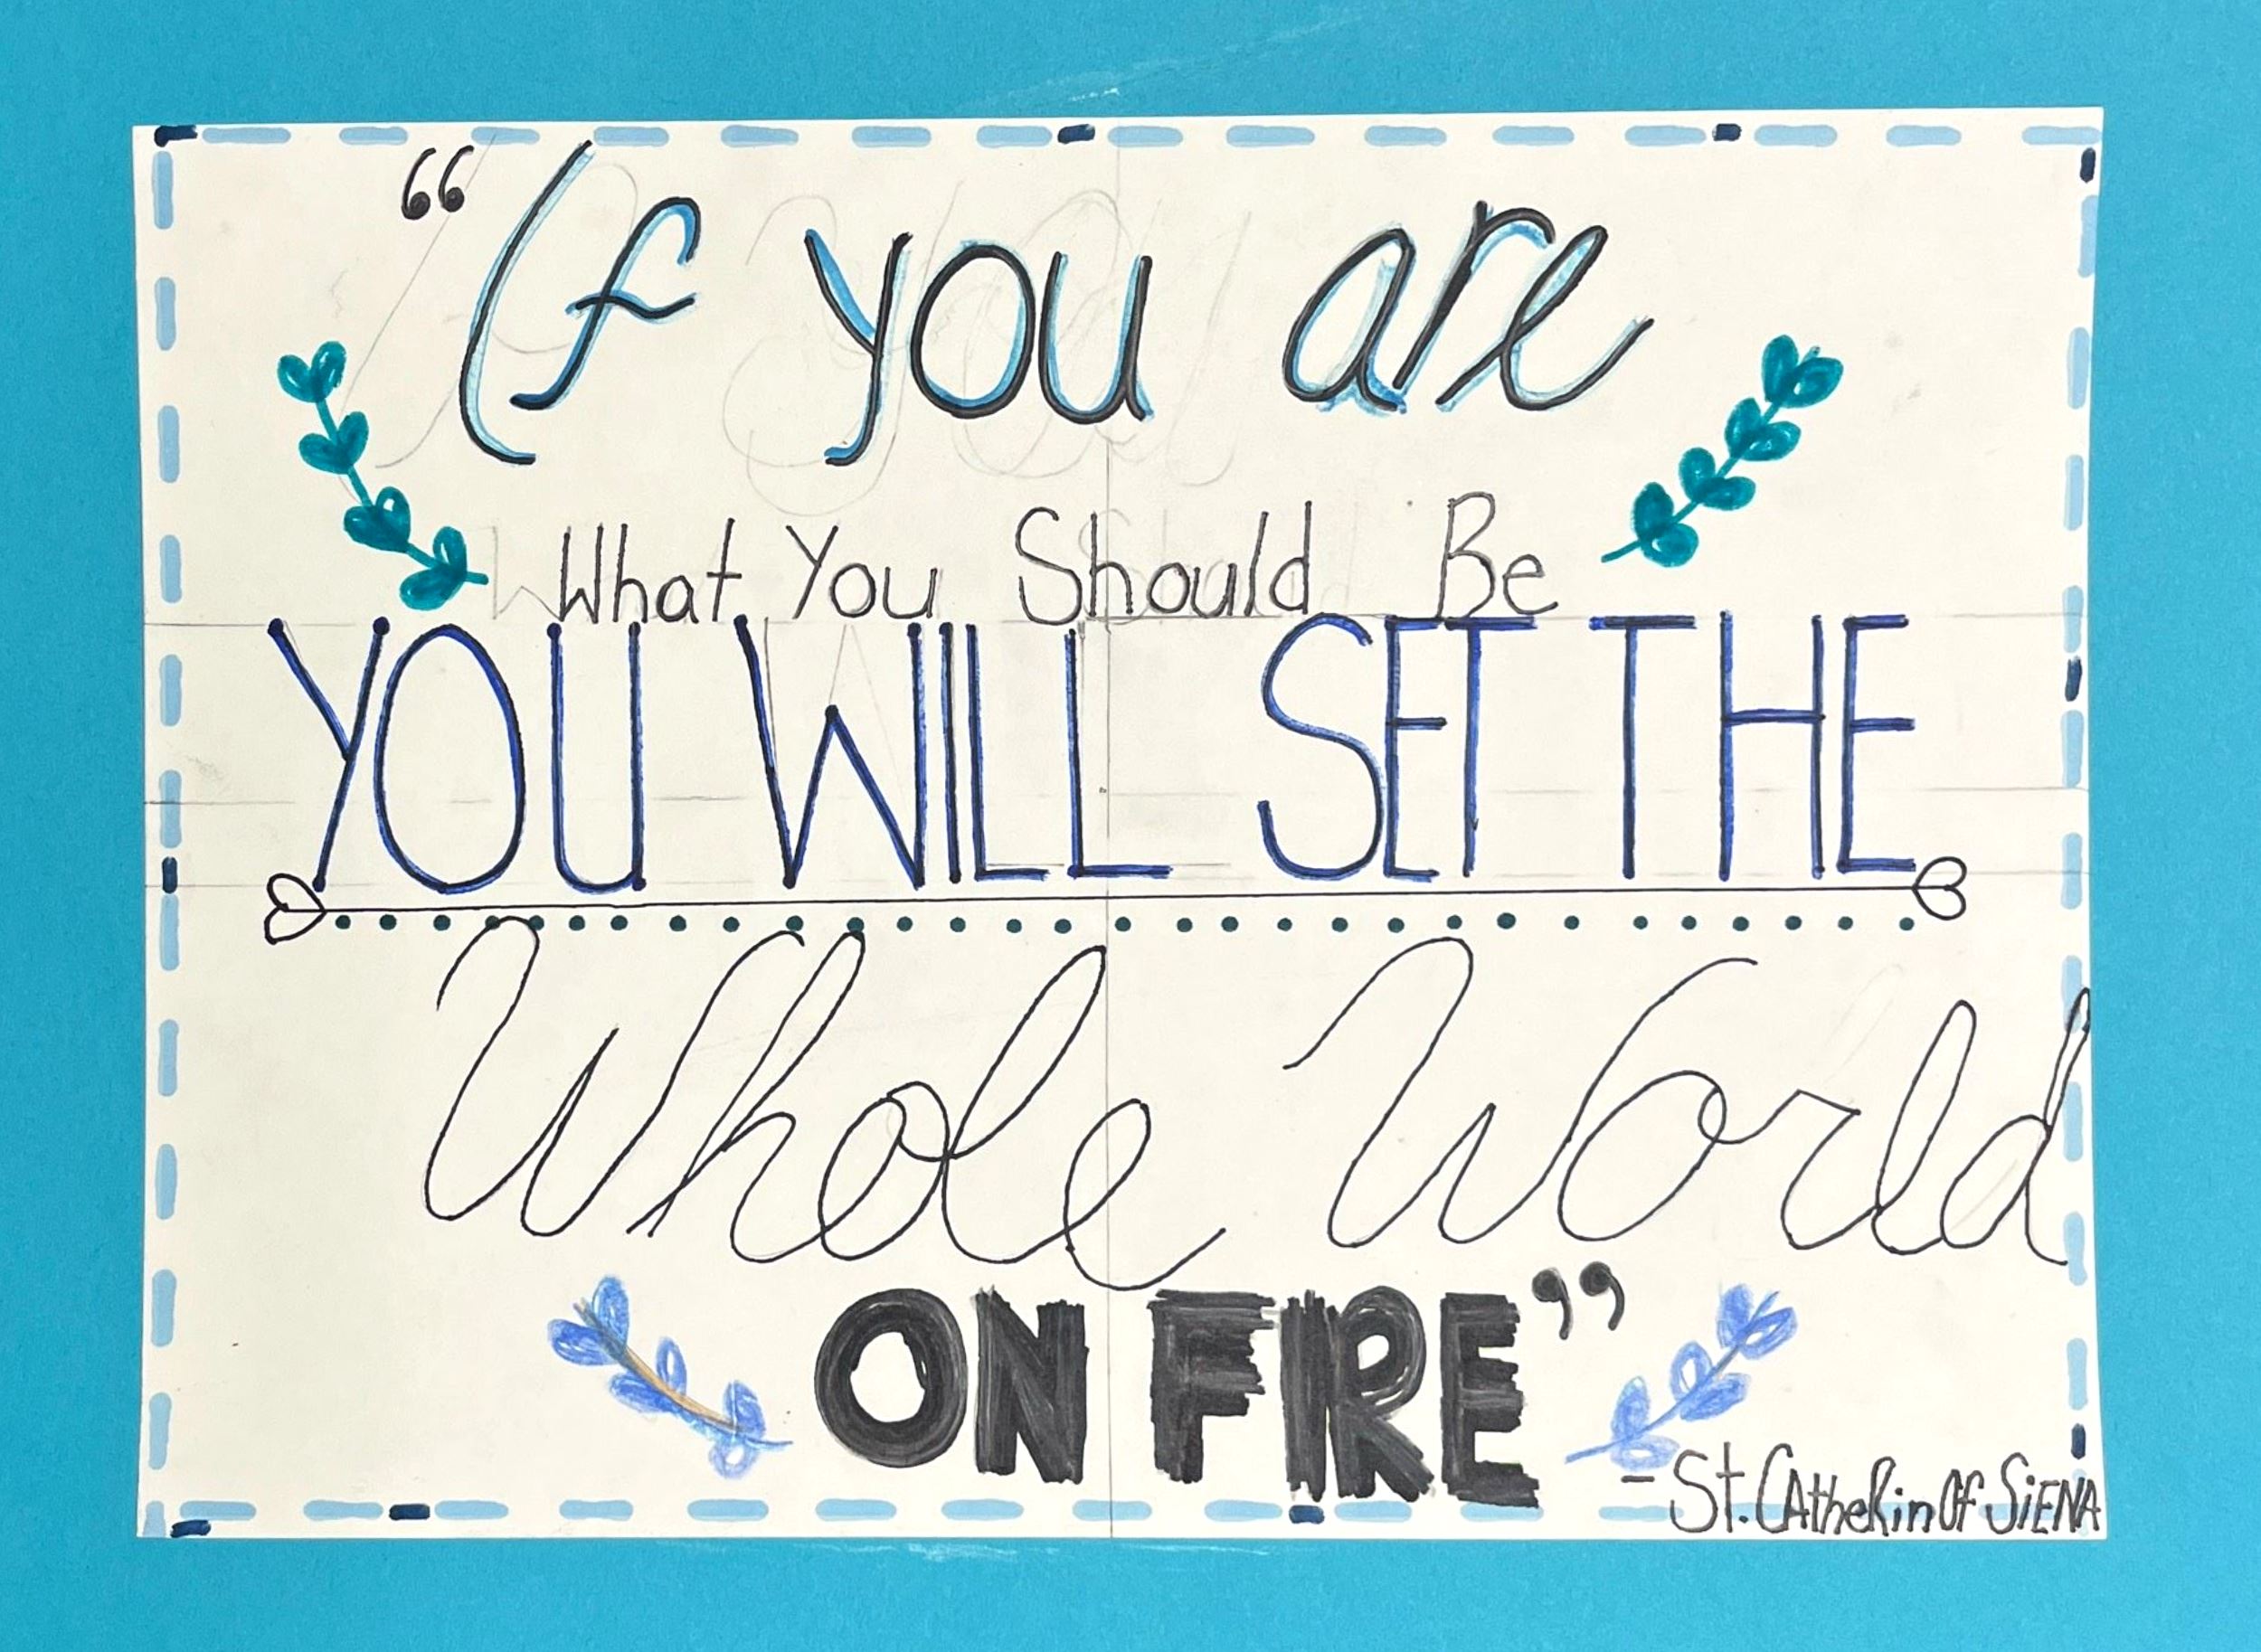 “If you are
What You Should Be
YOU WILL SET THE
Whole World
ON FIRE”
-St. CAtheRin Of SiENA